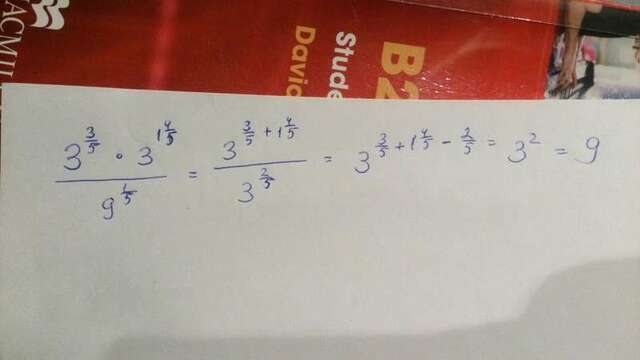 ACMIL
B2
Stude
David
\frac{3^{\frac{3}{5}} \cdot 3^{1\frac{4}{5}}}{9^{\frac{1}{5}}} = \frac{3^{\frac{3}{5}+1\frac{4}{5}}}{3^{\frac{2}{5}}} = 3^{\frac{3}{5}+1\frac{4}{5}-\frac{2}{5}} = 3^2 = 9